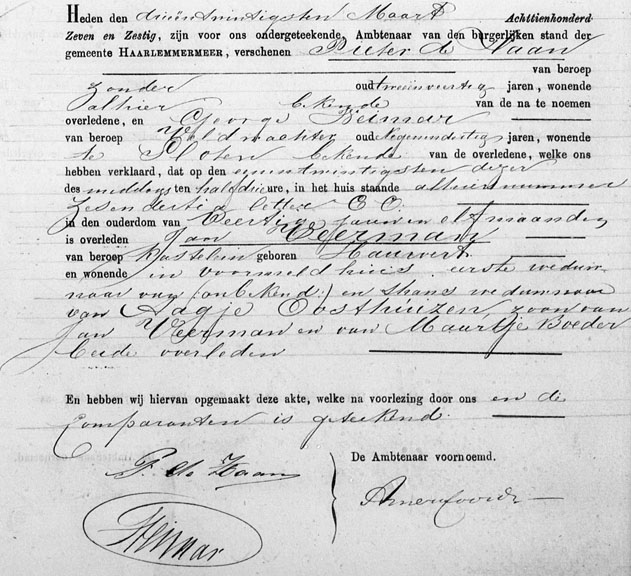 Heden den drieëntwintigsten Maart Achttienhonderd
Zeven en Zestig, zijn voor ons ondergeteekende, Ambtenaar van den burgerlijken stand der
gemeente HAARLEMMERMEER, verschenen Pieter de Haan
van beroep
zonder oud tweeënveertig jaren, wonende
alhier bekende van de na te noemen
overledene, en George Reimar
van beroep Veldwachter oud negenendertig jaren, wonende
te Sloten bekende van de overledene, welke ons
hebben verklaard, dat op den eenentwintigsten dezer
des middags ten half drie ure, in het huis staande alhier nummer
zesendertig letter CC
in den ouderdom van Veertig jaren en elf maanden
is overleden Jan Veerman
van beroep kastelein geboren Hauwert
en wonende in voormeld huis eerste weduw-
naar van (onbekend) en thans weduwnaar
van Aagje Oosthuizen, zoon van
Jan Veerman en van Maartje Boeder
beide overleden
En hebben wij hiervan opgemaakt deze akte, welke na voorlezing door ons en de
Comparanten is geteekend.
De Ambtenaar voornoemd.
P. de Haan
Amersfoordt
Reimar